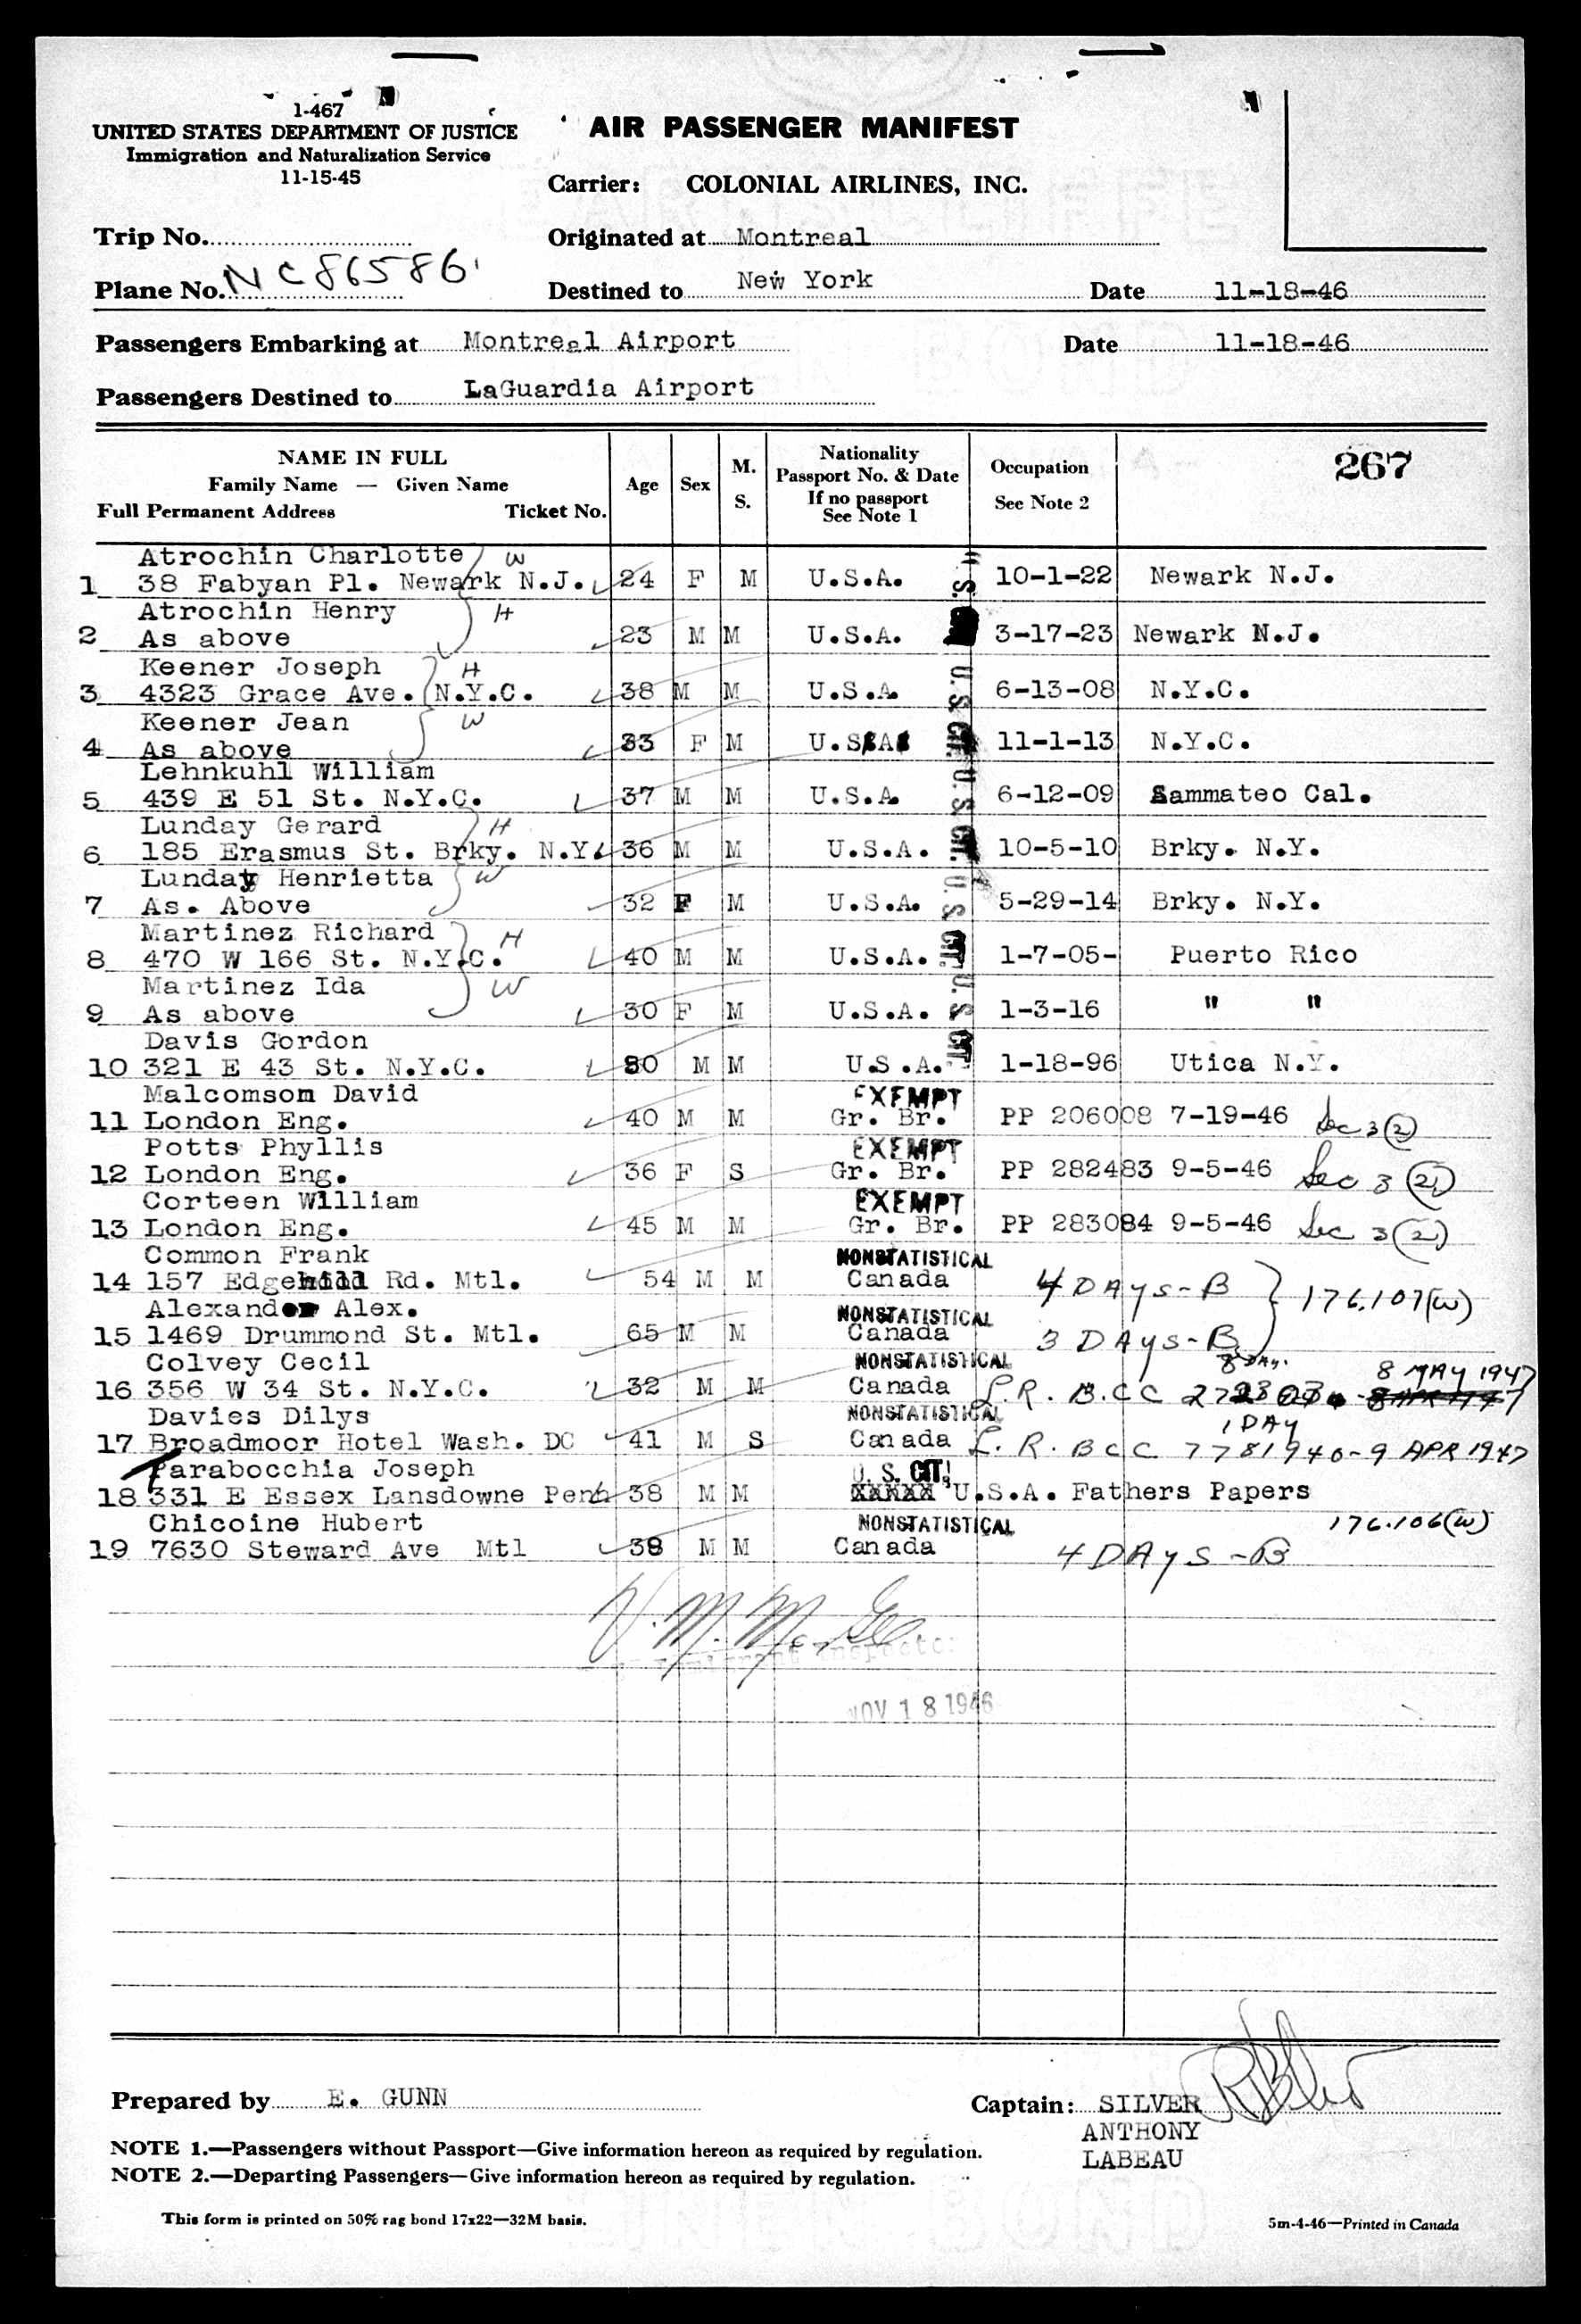 1-467
UNITED STATES DEPARTMENT OF JUSTICE
Immigration and Naturalization Service
11-15-45
AIR PASSENGER MANIFEST
Carrier: COLONIAL AIRLINES, INC.
Trip No.
Originated at Montreal
Plane No. NC86586
Destined to New York Date 11-18-46
Passengers Embarking at Montreal Airport Date 11-18-46
Passengers Destined to LaGuardia Airport
NAME IN FULL
Family Name — Given Name
Full Permanent Address Ticket No.
Age
Sex
M. S.
Nationality
Passport No. & Date
If no passport
See Note 1
Occupation
See Note 2
267
Atrochin Charlotte W
1 38 Fabyan Pl. Newark N.J. 24 F M U.S.A. 10-1-22 Newark N.J.
Atrochin Henry H
2 As above 23 M M U.S.A. 3-17-23 Newark N.J.
Keener Joseph H
3 4323 Grace Ave. N.Y.C. 38 M M U.S.A. 6-13-08 N.Y.C.
Keener Jean W
4 As above 33 F M U.S.A. 11-1-13 N.Y.C.
Lehnkuhl William
5 439 E 51 St. N.Y.C. 37 M M U.S.A. 6-12-09 Sammateo Cal.
Lunday Gerard H
6 185 Erasmus St. Brky. N.Y. 36 M M U.S.A. 10-5-10 Brky. N.Y.
Lunday Henrietta W
7 As. Above 32 F M U.S.A. 5-29-14 Brky. N.Y.
Martinez Richard H
8 470 W 166 St. N.Y.C. 40 M M U.S.A. 1-7-05- Puerto Rico
Martinez Ida W
9 As above 30 F M U.S.A. 1-3-16 " "
Davis Gordon
10 321 E 43 St. N.Y.C. 50 M M U.S.A. 1-18-96 Utica N.Y.
Malcomson David EXEMPT
11 London Eng. 40 M M Gr. Br. PP 206008 7-19-46 Sec 3(2)
Potts Phyllis EXEMPT
12 London Eng. 36 F S Gr. Br. PP 282483 9-5-46 Sec 3(2)
Corteen William EXEMPT
13 London Eng. 45 M M Gr. Br. PP 283084 9-5-46 Sec 3(2)
Common Frank NONSTATISTICAL
14 157 Edgehill Rd. Mtl. 54 M M Canada 4 DAYS-B 176.107(W)
Alexander Alex. NONSTATISTICAL
15 1469 Drummond St. Mtl. 65 M M Canada 3 DAYS-B
Colvey Cecil NONSTATISTICAL 8 MAY 1947
16 356 W 34 St. N.Y.C. 32 M M Canada L.R. B.CC
Davies Dilys NONSTATISTICAL 1 DAY
17 Broadmoor Hotel Wash. DC 41 M S Canada L.R. BCC 7781940-9 APR 1947
Parabocchia Joseph U. S. CIT.
18 331 E Essex Lansdowne Penn 38 M M XXXXX U.S.A. Fathers Papers
Chicoine Hubert NONSTATISTICAL 176.106(W)
19 7630 Steward Ave Mtl 38 M M Canada 4 DAYS-B
V. M. McGee
Immigrant Inspector
NOV 18 1946
Prepared by E. GUNN
Captain: SILVER
ANTHONY
LABEAU
NOTE 1.—Passengers without Passport—Give information hereon as required by regulation.
NOTE 2.—Departing Passengers—Give information hereon as required by regulation.
This form is printed on 50% rag bond 17x22—32M basis.
5m-4-46—Printed in Canada